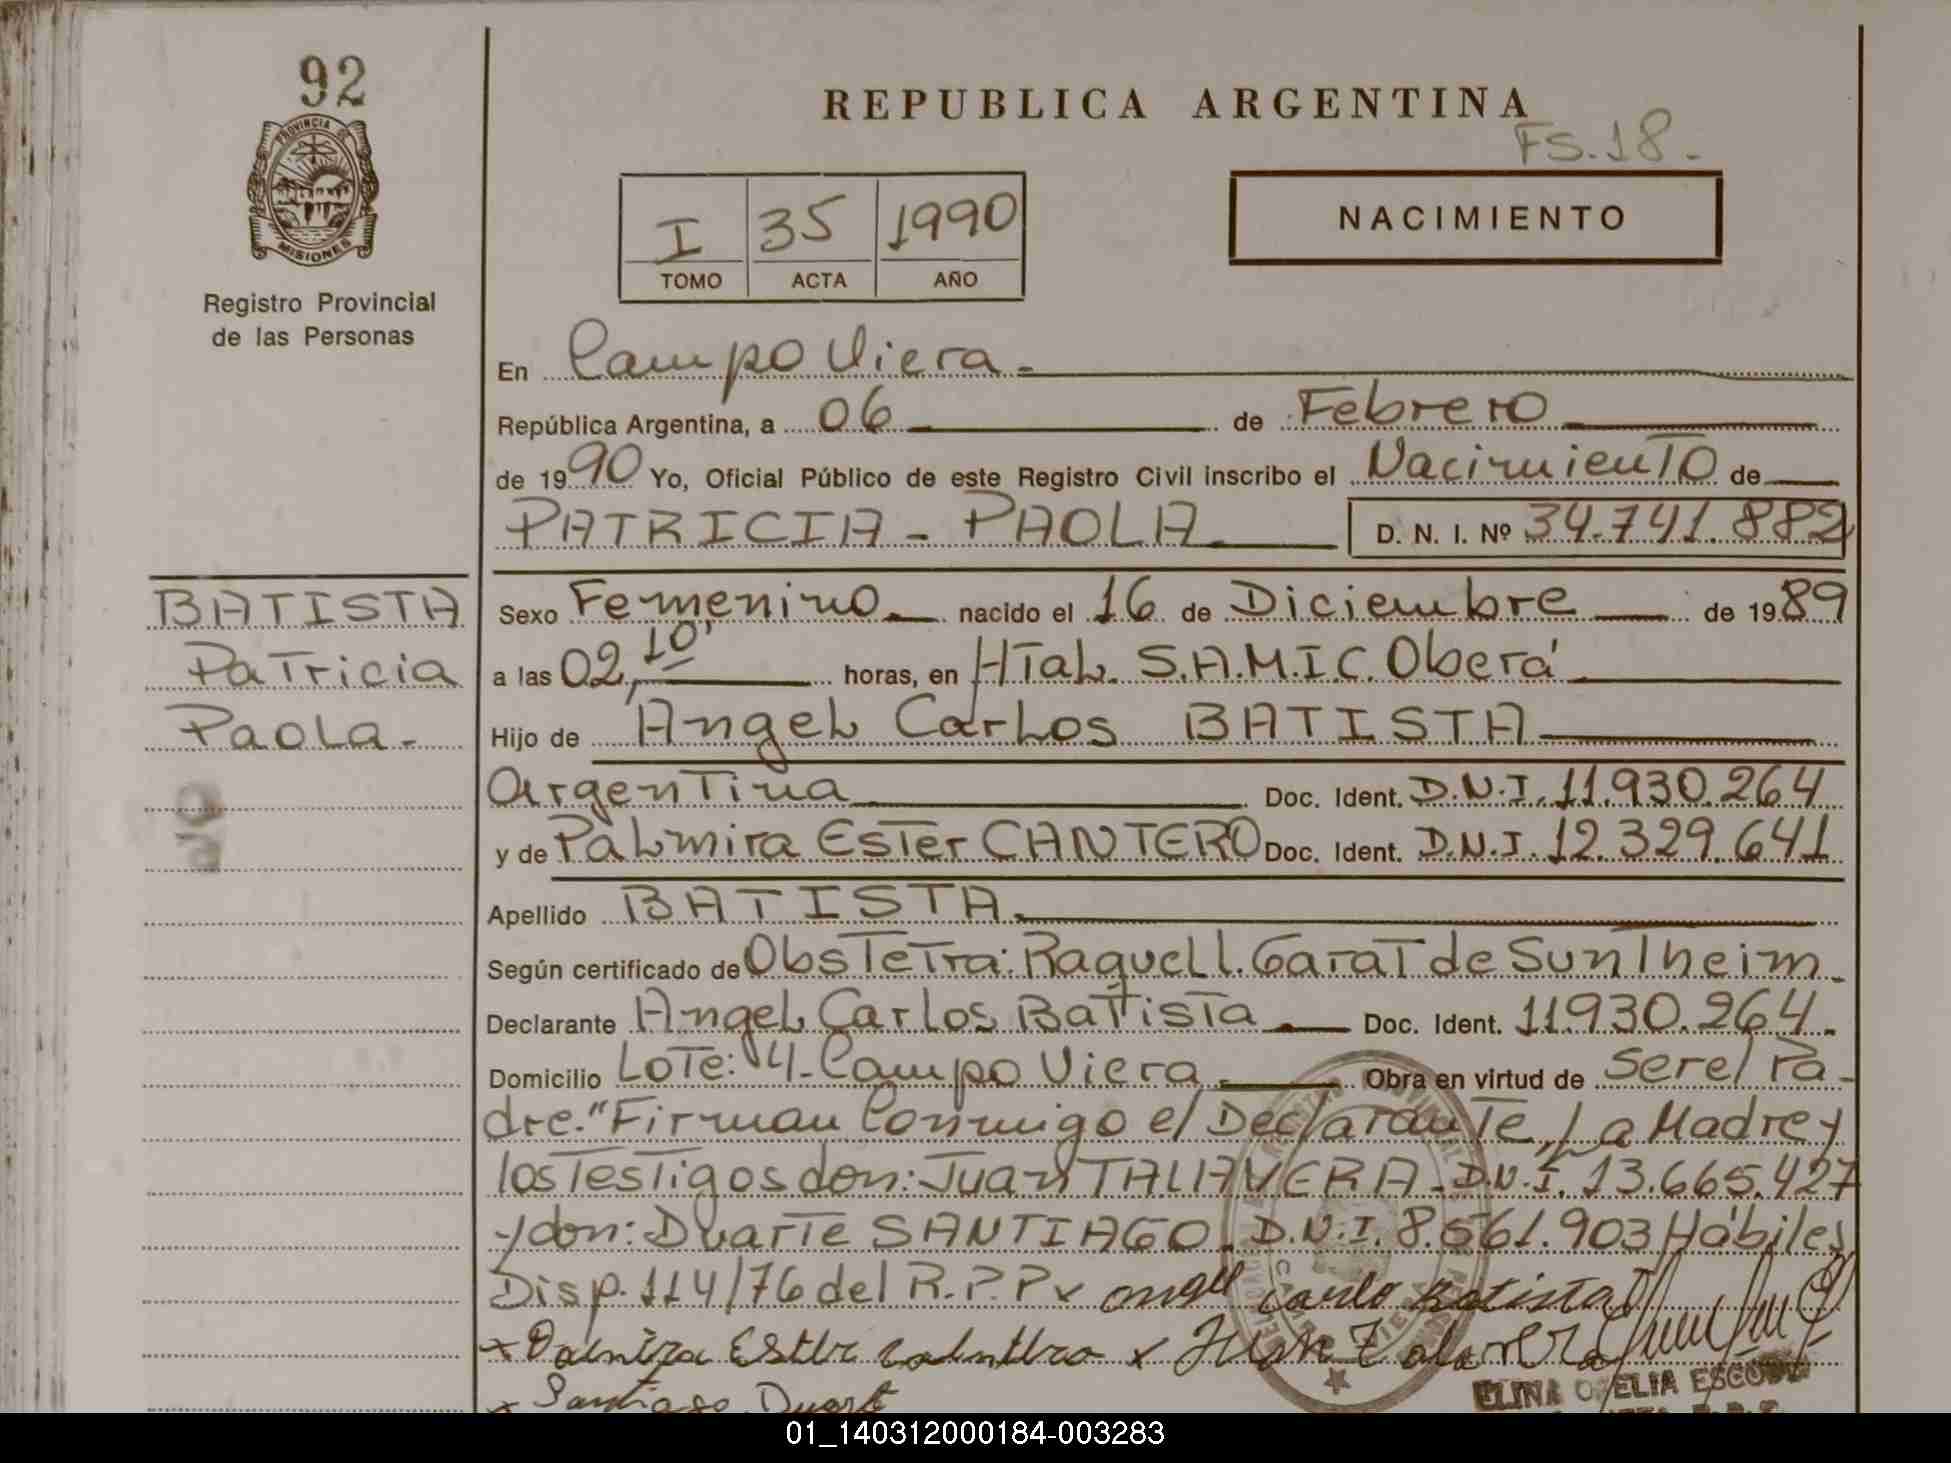 92
PROVINCIA DE
MISIONES
Registro Provincial
de las Personas
REPUBLICA ARGENTINA
FS.18.
I 35 1990
TOMO ACTA AÑO
NACIMIENTO
En Campo Viera.
República Argentina, a 06 de Febrero
de 1990 Yo, Oficial Público de este Registro Civil inscribo el Nacimiento de
PATRICIA - PAOLA. D. N. I. Nº 34.741.882
BATISTA
Patricia
Paola.-
Sexo Femenino nacido el 16 de Diciembre de 1989
a las 02,10' horas, en Htal. S.A.M.I.C. Oberá
Hijo de Angel Carlos BATISTA
Argentina Doc. Ident. D.N.I. 11.930.264
y de Palmira Ester CANTERO Doc. Ident. D.N.I. 12.329.641
Apellido BATISTA.
Según certificado de Obstetra: Raquel l. Garat de Suntheim.
Declarante Angel Carlos Batista Doc. Ident. 11930.264.
Domicilio Lote: 4- Campo Viera Obra en virtud de Ser el Pa-
dre." Firman Conmigo el Declarante, La Madre y
los Testigos don: Juan TALAVERA. D.N.I. 13.665.427
y don: Duarte SANTIAGO. D.N.I. 8.561.903 Hábiles
Disp. 114/76 del R.P.P. x angel carlo Batista
x Ester x Juan Talavera
x Santiago Duart
ELINA OFELIA ESCOBAR
01_140312000184-003283